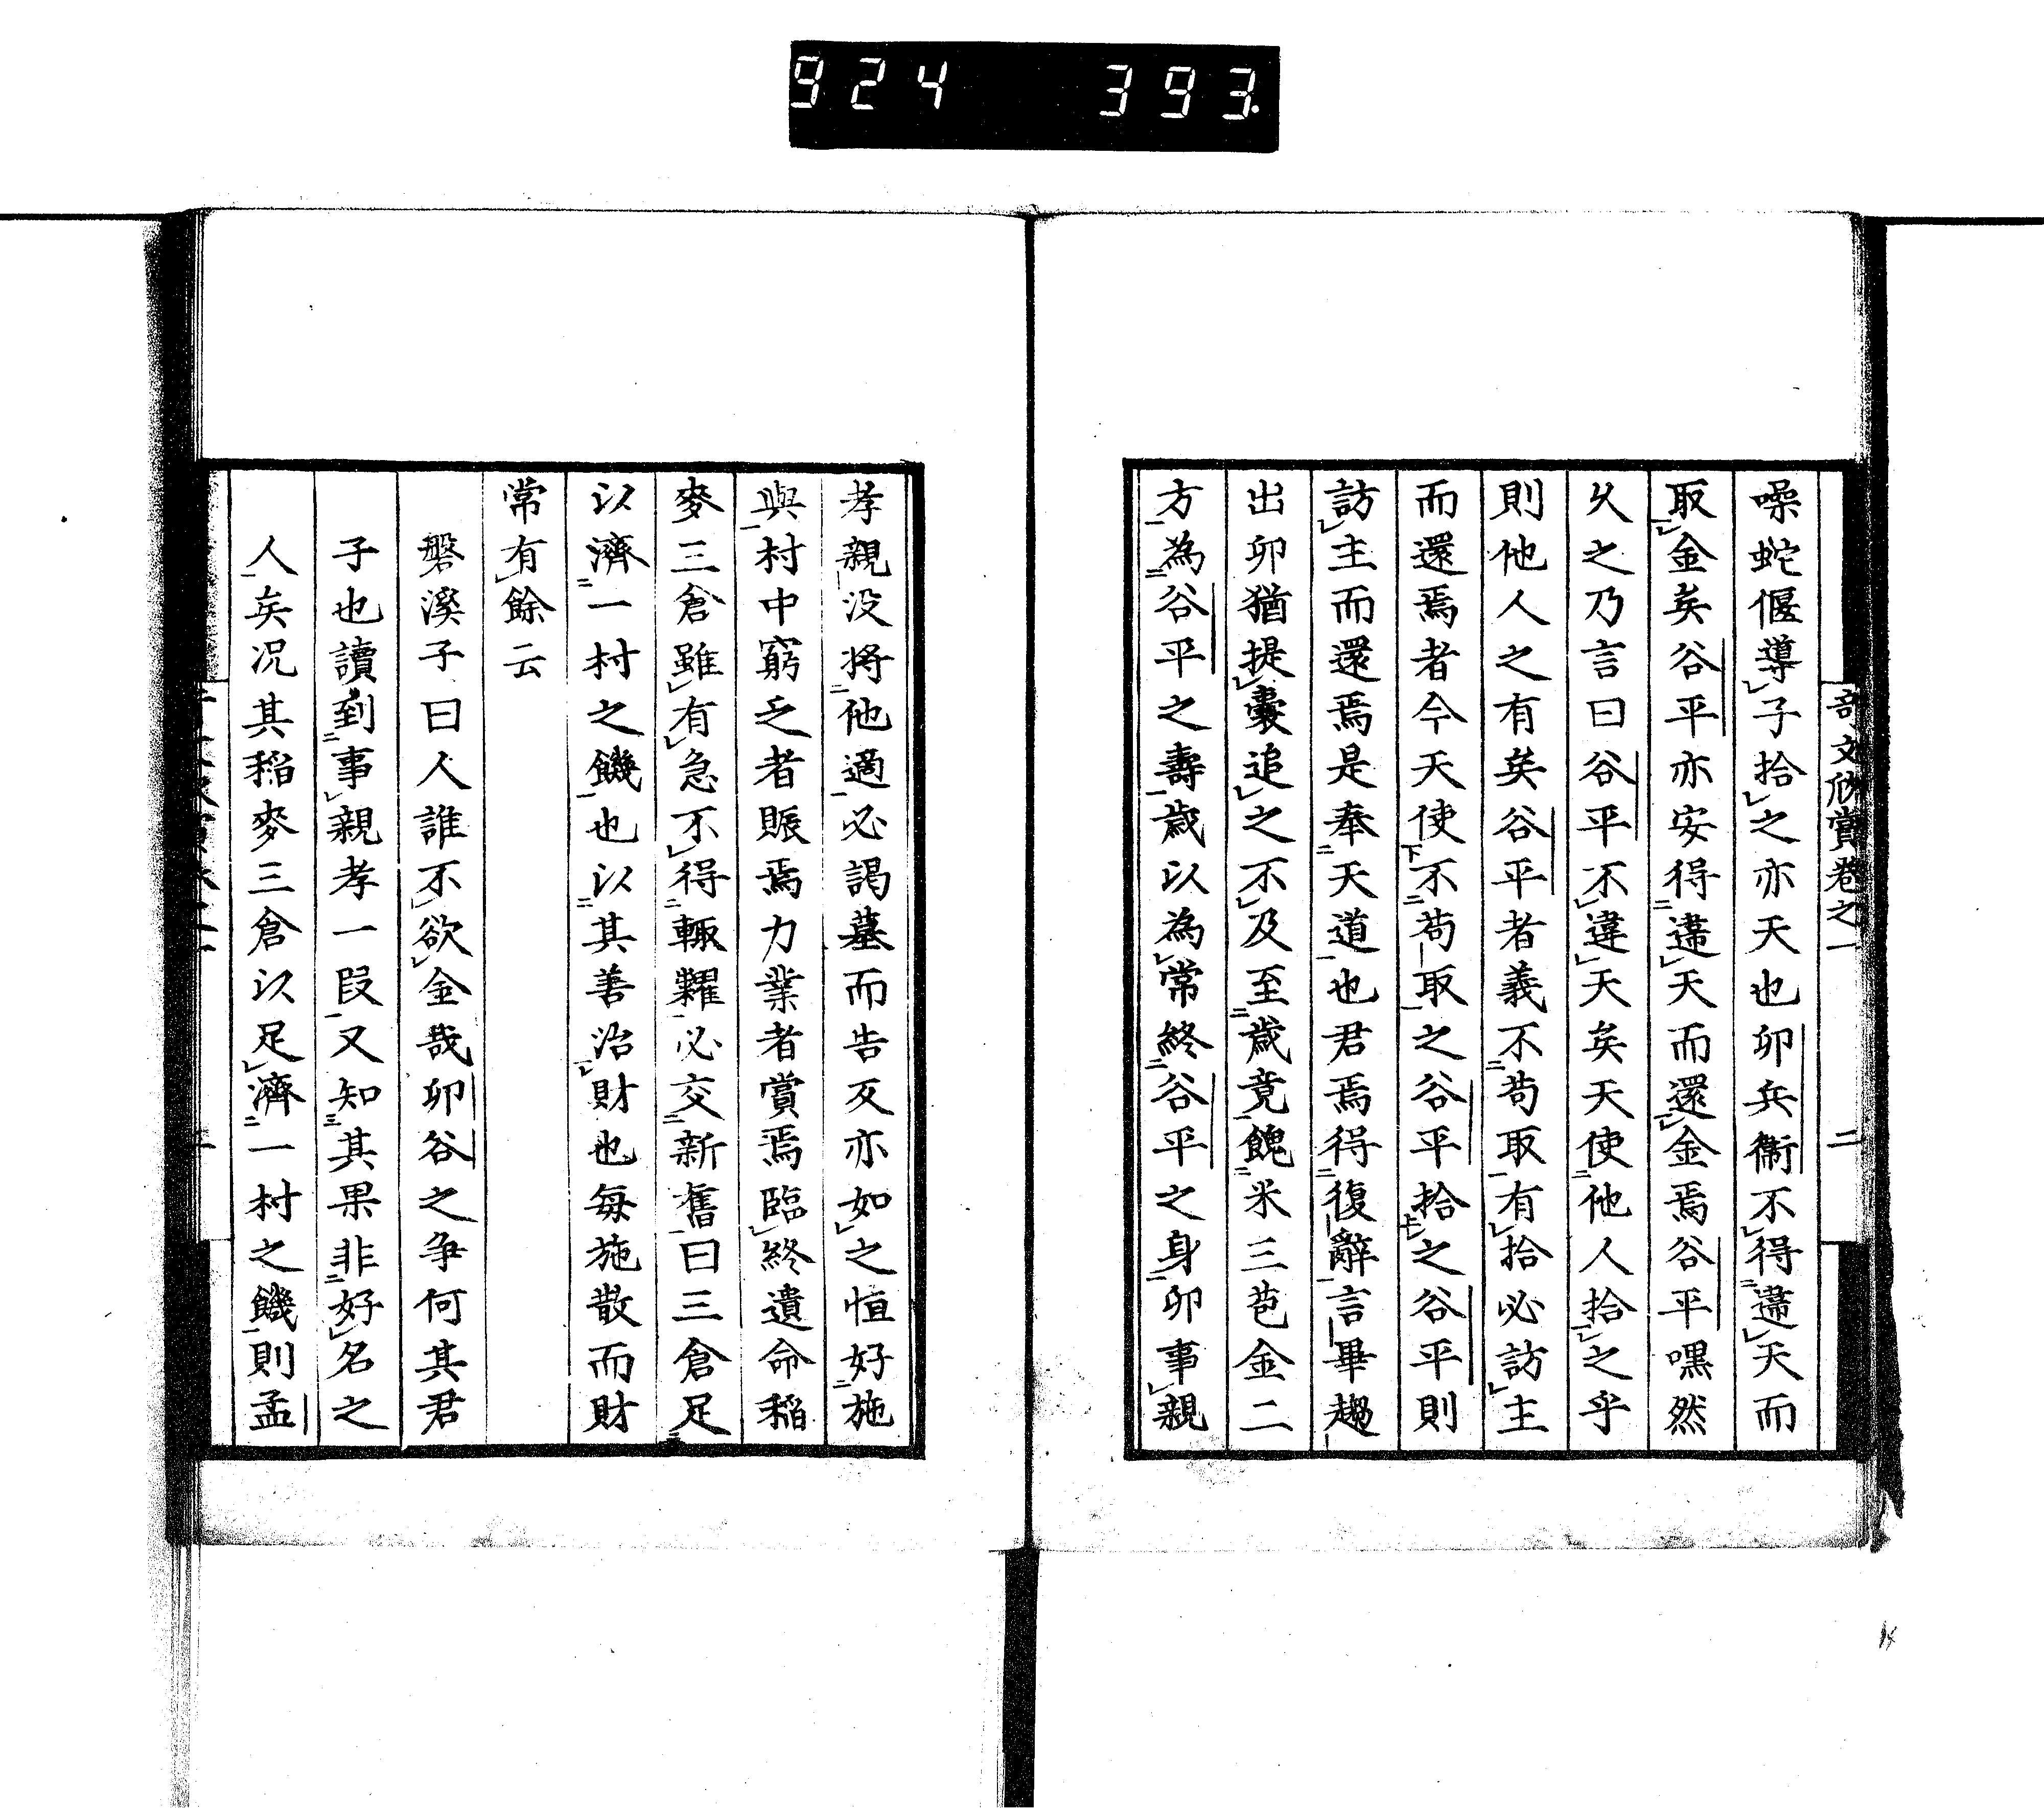 924 393
奇文欣賞卷之一 二
噪蛇偃導子拾之亦天也卯兵衞不得違天而
取金矣谷平亦安得違天而還金焉谷平嘿然
久之乃言曰谷平不違天矣天使他人拾之乎
則他人之有矣谷平者義不苟取有拾必訪主
而還焉者今天使不苟取之谷平拾之谷平則
訪主而還焉是奉天道也君焉得復辭言畢趨
出卯猶提囊追之不及至歲竟餽米三苞金二
方為谷平之壽歲以為常終谷平之身卯事親
孝親没將他適必謁墓而告反亦如之恒好施
與村中窮乏者賑焉力業者賞焉臨終遺命稲
麥三倉雖有急不得輙糶必交新舊曰三倉足
以濟一村之饑也以其善治財也每施散而財
常有餘云
磐溪子曰人誰不欲金哉卯谷之争何其君
子也讀到事親孝一段又知其果非好名之
人矣况其稲麥三倉以足濟一村之饑則孟